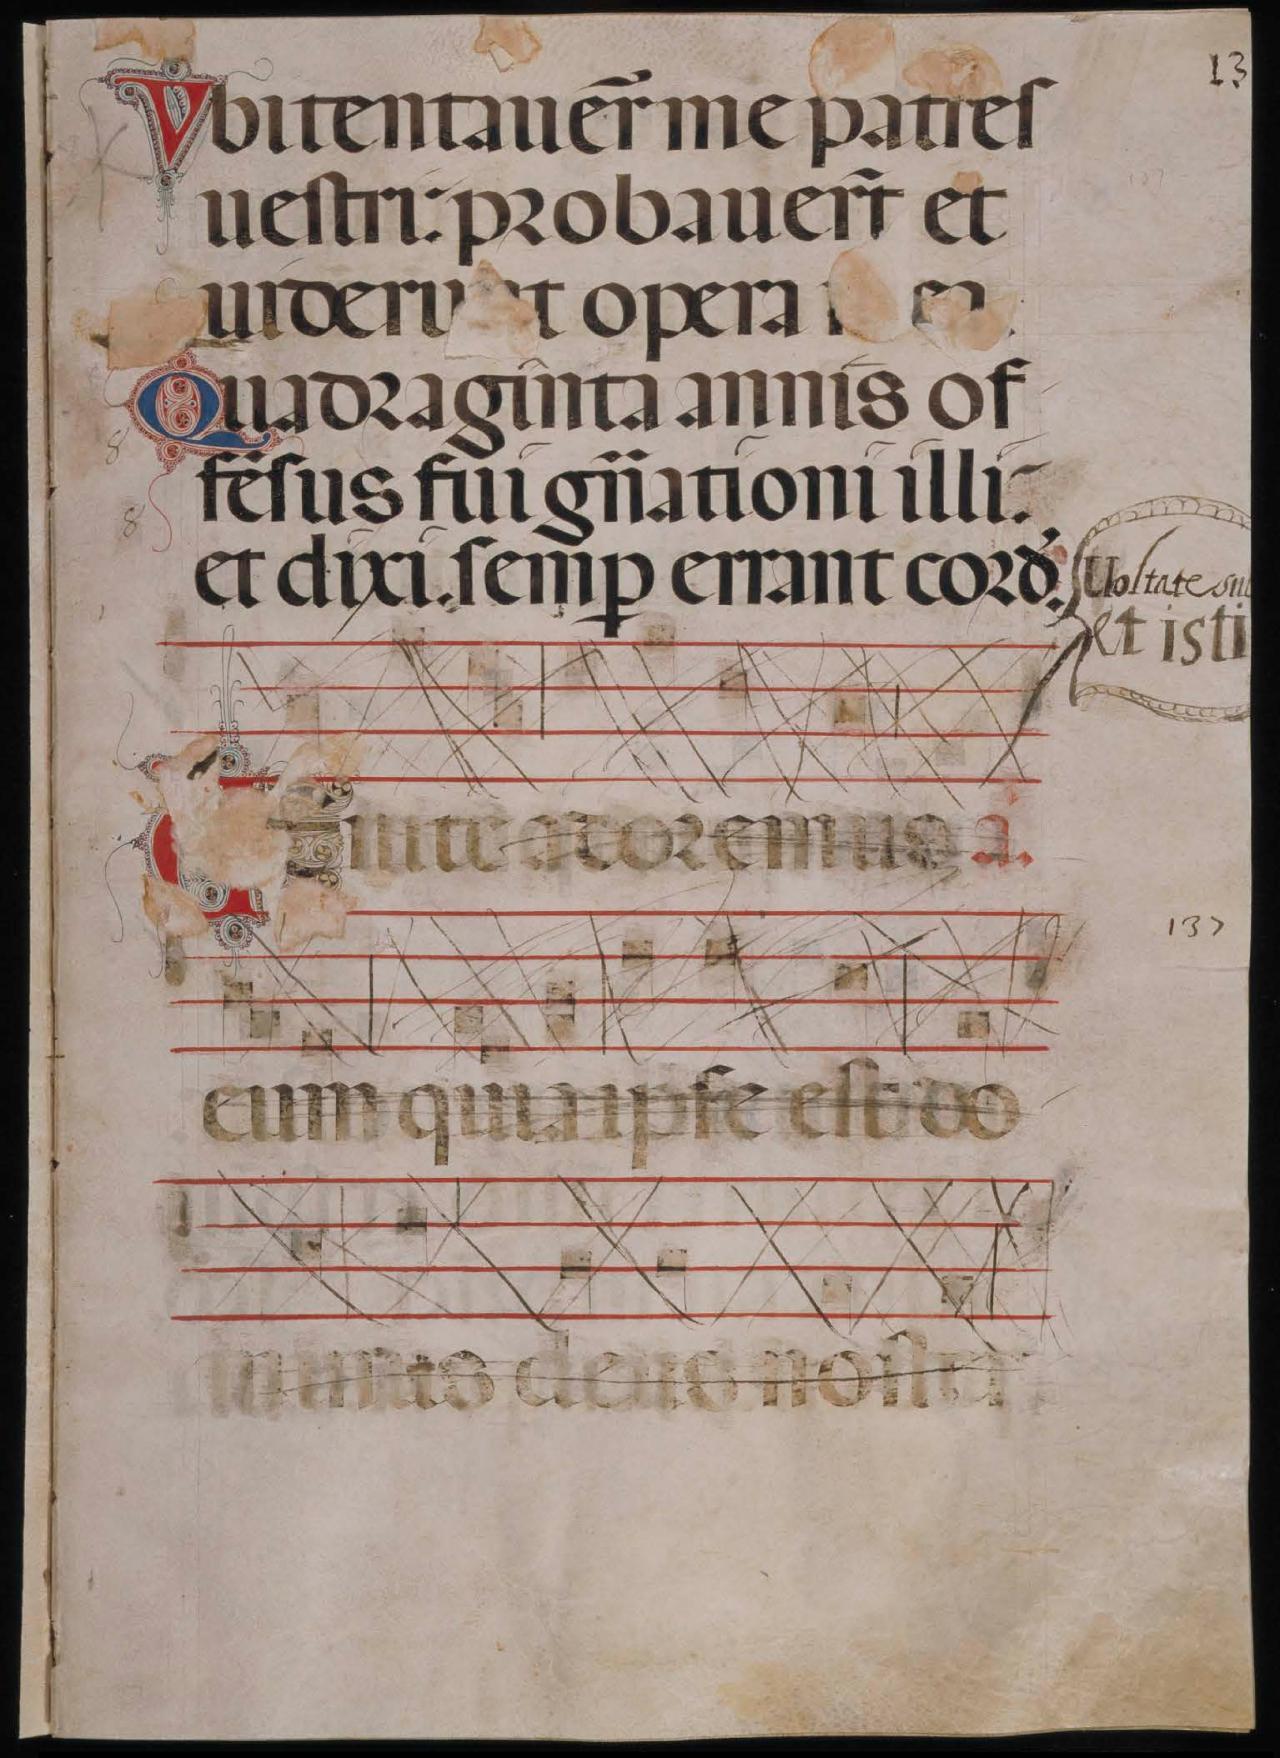 13
Vbi tentauer̄ me patres
uestri: probauer̄t et
uiderunt opera
Quadraginta annis of
fēsus fui gñationi illi:
et dixi. semp̱ errant cord̾.
Uoltate
et isti
Uenite adoremus a.
137
eum quia ipse est do
minus deus noster